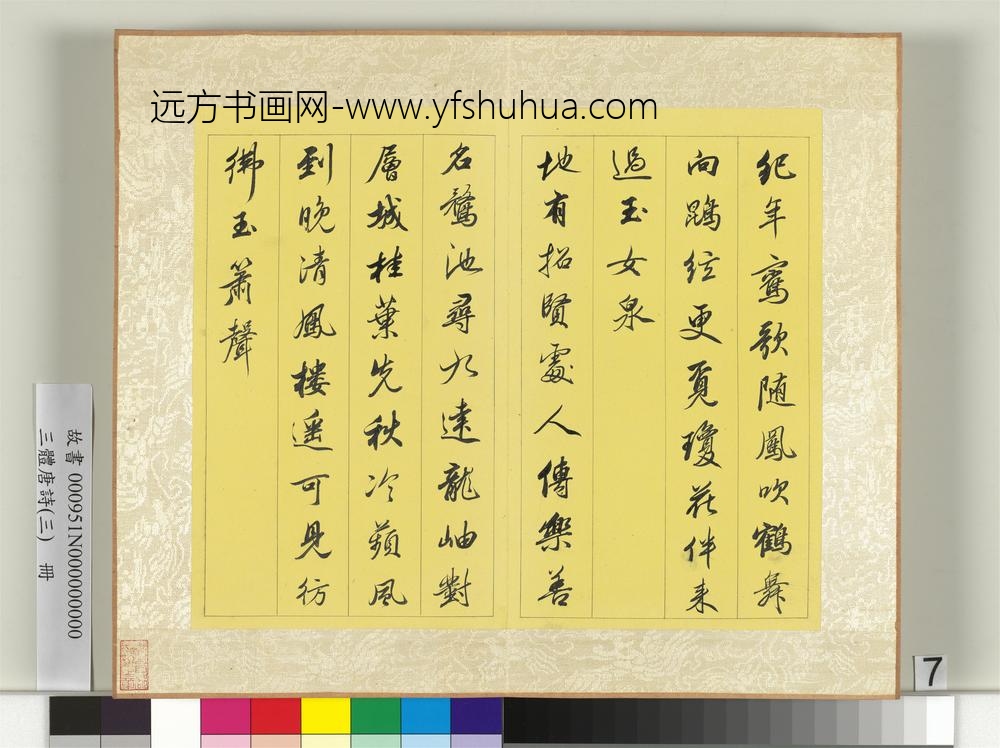 远方书画网-www.yfshuhua.com
紀年鸞歌随鳳吹鶴舞
向鵾絃更覓瓊花伴来
過玉女泉
地有招賢處人傳樂善
名鶩池尋九逵龍岫對
層城桂葉先秋冷蘋風
到晚清鳳樓遥可見彷
彿玉簫聲
故書 000951N000000000
三體唐詩(三) 冊
7